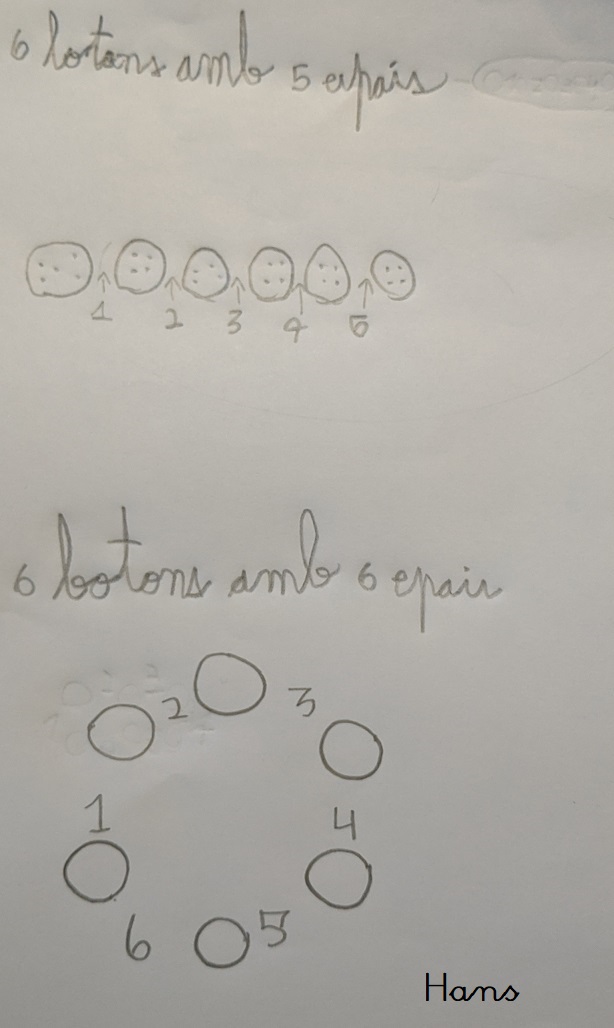 6 botons amb 5 epais
1 2 3 4 5
6 botons amb 6 epais
2 3
1 4
6 5
Hans